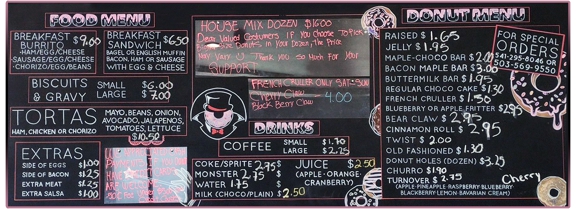 FOOD MENU
BREAKFAST BURRITO $7.00
-HAM/EGG/CHEESE
SAUSAGE/EGG/CHEESE
-CHORIZO/EGG/BEANS
BREAKFAST SANDWICH $6.50
BAGEL OR ENGLISH MUFFIN
BACON, HAM OR SAUSAGE
WITH EGG & CHEESE
BISCUITS & GRAVY
SMALL $6.00
LARGE $7.00
TORTAS
HAM, CHICKEN OR CHORIZO
MAYO, BEANS, ONION,
AVOCADO, JALAPENOS,
TOMATOES, LETTUCE
$10.50
EXTRAS
SIDE OF EGGS $1.00
SIDE OF BACON $1.25
EXTRA MEAT $1.25
EXTRA SALSA $1.00
HOUSE MIX DOZEN $16.00
Dear Valued Costumers If You Choose To Pick
Donuts in Your Dozen, The Price
May Vary Thank You So Much For Your
SUPPORT
FRENCH CRULLER ONLY SAT-SUN
Berry Claw
Black Berry Claw 4.00
DRINKS
COFFEE
SMALL $1.70
LARGE $2.25
COKE/SPRITE 2.75
MONSTER 2.75
WATER 1.75
MILK (CHOCO/PLAIN) $2.50
JUICE $2.50
(APPLE-ORANGE-
CRANBERRY)
DONUT MENU
RAISED $1.65
JELLY $1.95
MAPLE-CHOCO BAR
BACON MAPLE BAR 3.00
BUTTERMILK BAR $1.95
REGULAR CHOCO CAKE $1.30
FRENCH CRULLER $1.50
BLUEBERRY OR APPLE FRITTER $2.95
BEAR CLAW $2.95
CINNAMON ROLL $2.95
TWIST $2.00
OLD FASHIONED $1.30
DONUT HOLES (DOZEN) $3.25
CHURRO $1.90
TURNOVER $2.75 Cherry
(APPLE-PINEAPPLE-RASPBERRY-BLUEBERRY-
BLACKBERRY LEMON BAVARIAN CREAM)
FOR SPECIAL
ORDERS
541-295-8046 OR
503-559-9550